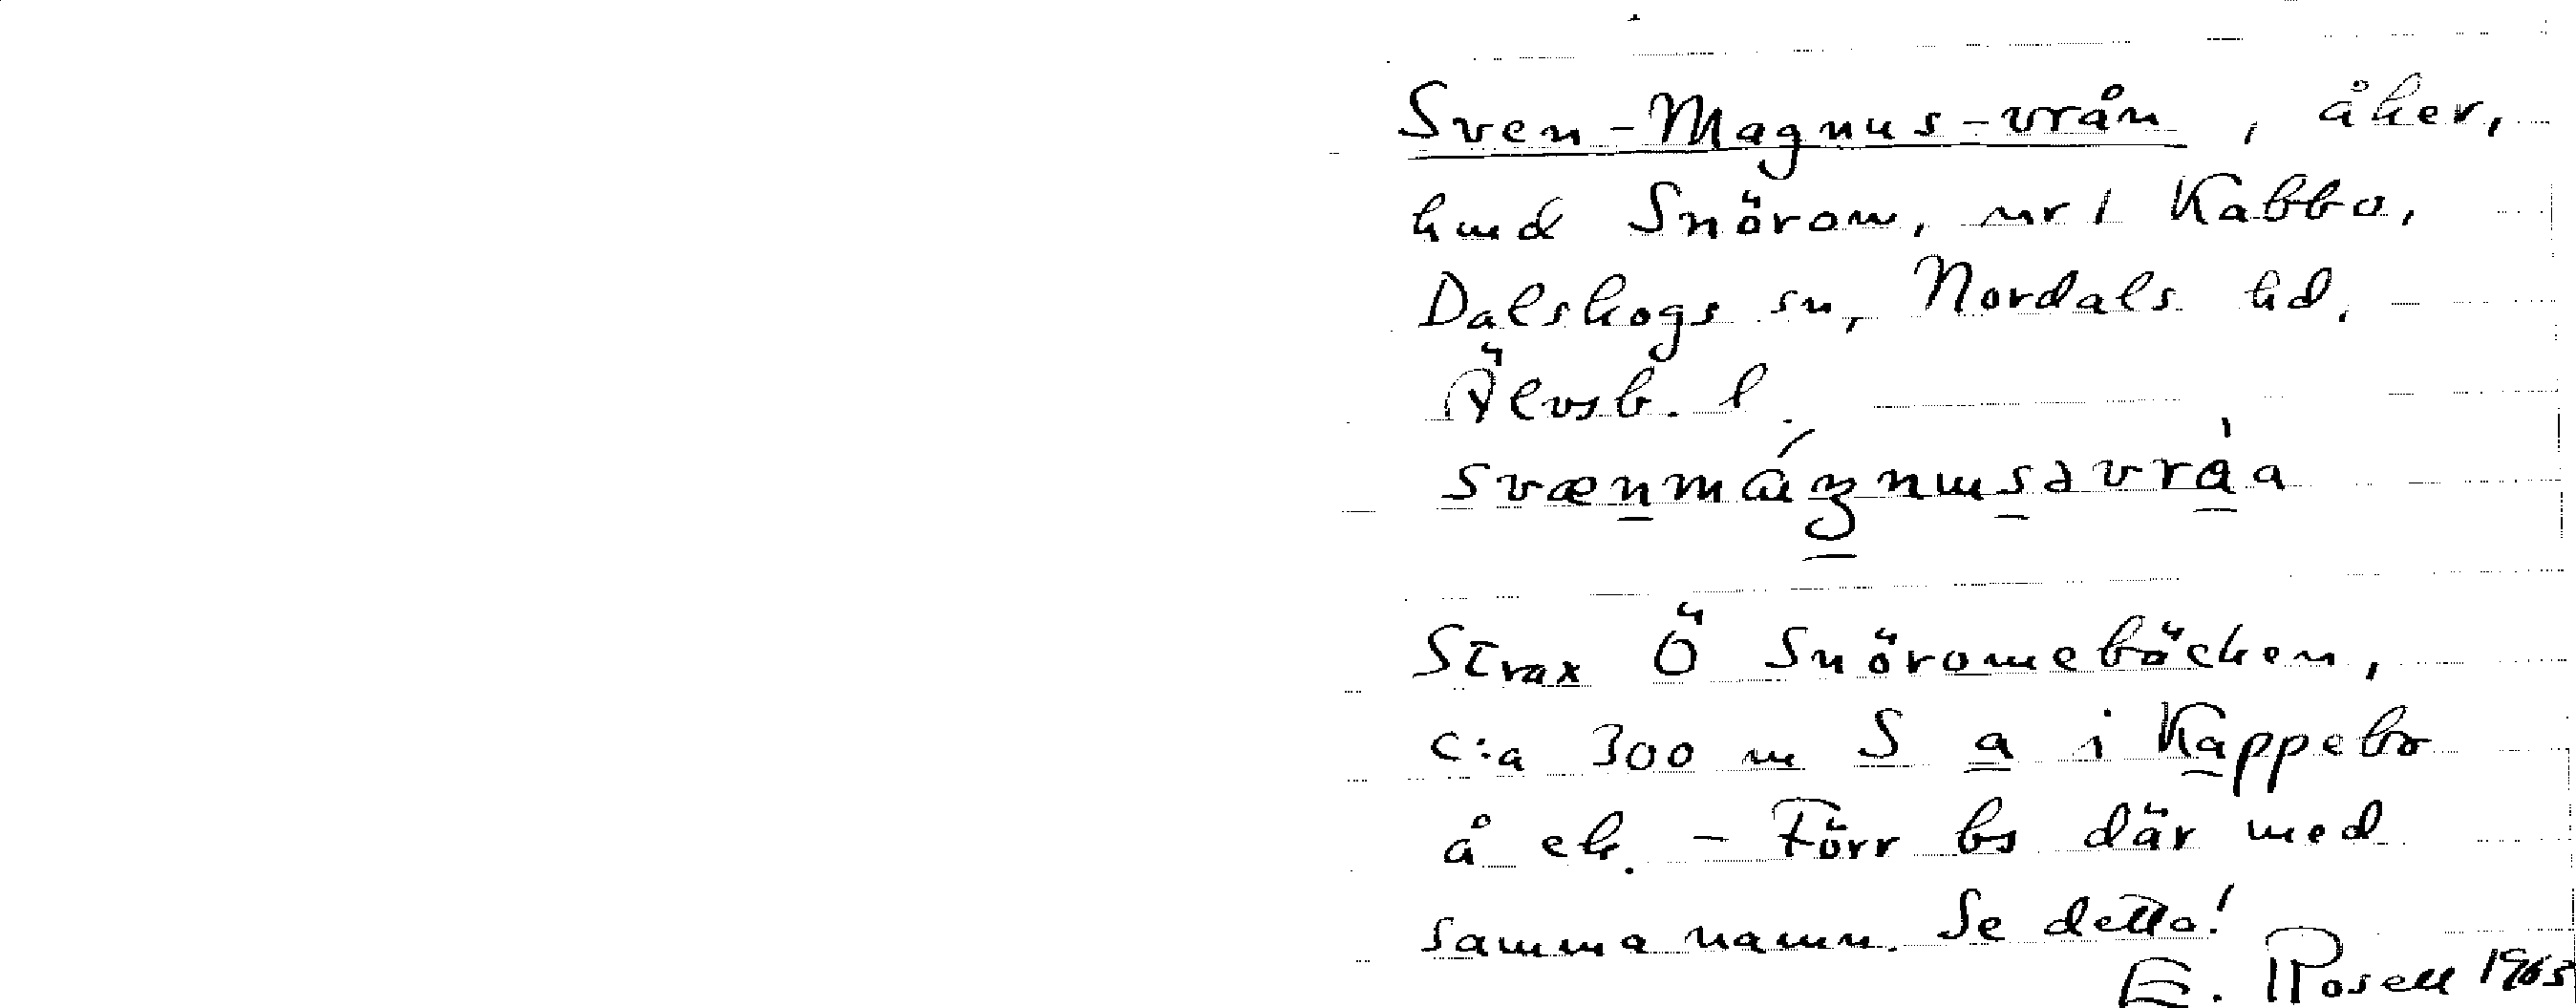 Sven-Magnus-vrån, åker,
hmd Snörom, nr 1 Kabbo,
Dalskogs sn, Nordals hd,
Älvsb. l.
svænmágnusəvràa
Strax Ö Snöromebäcken,
c:a 300 m S a i Kappebo
å ek. - Förr bs där med
samma namn. Se detta!
E. Rosell 1965